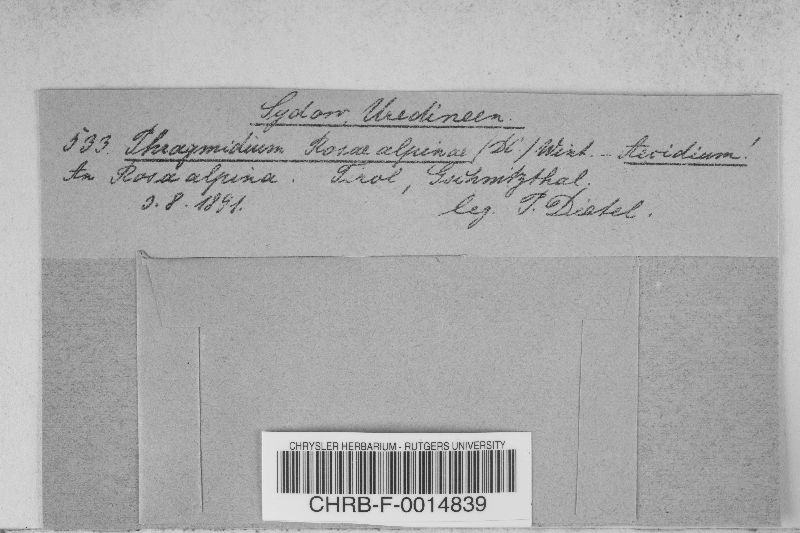 Sydow, Uredineen.
533. Phragmidium Rosae alpinae /DC/ Wint. - Aecidium!
An Rosa alpina. Tirol, Gschnitzthal.
3. 8. 1891. leg. P. Dietel.
CHRYSLER HERBARIUM - RUTGERS UNIVERSITY
CHRB-F-0014839